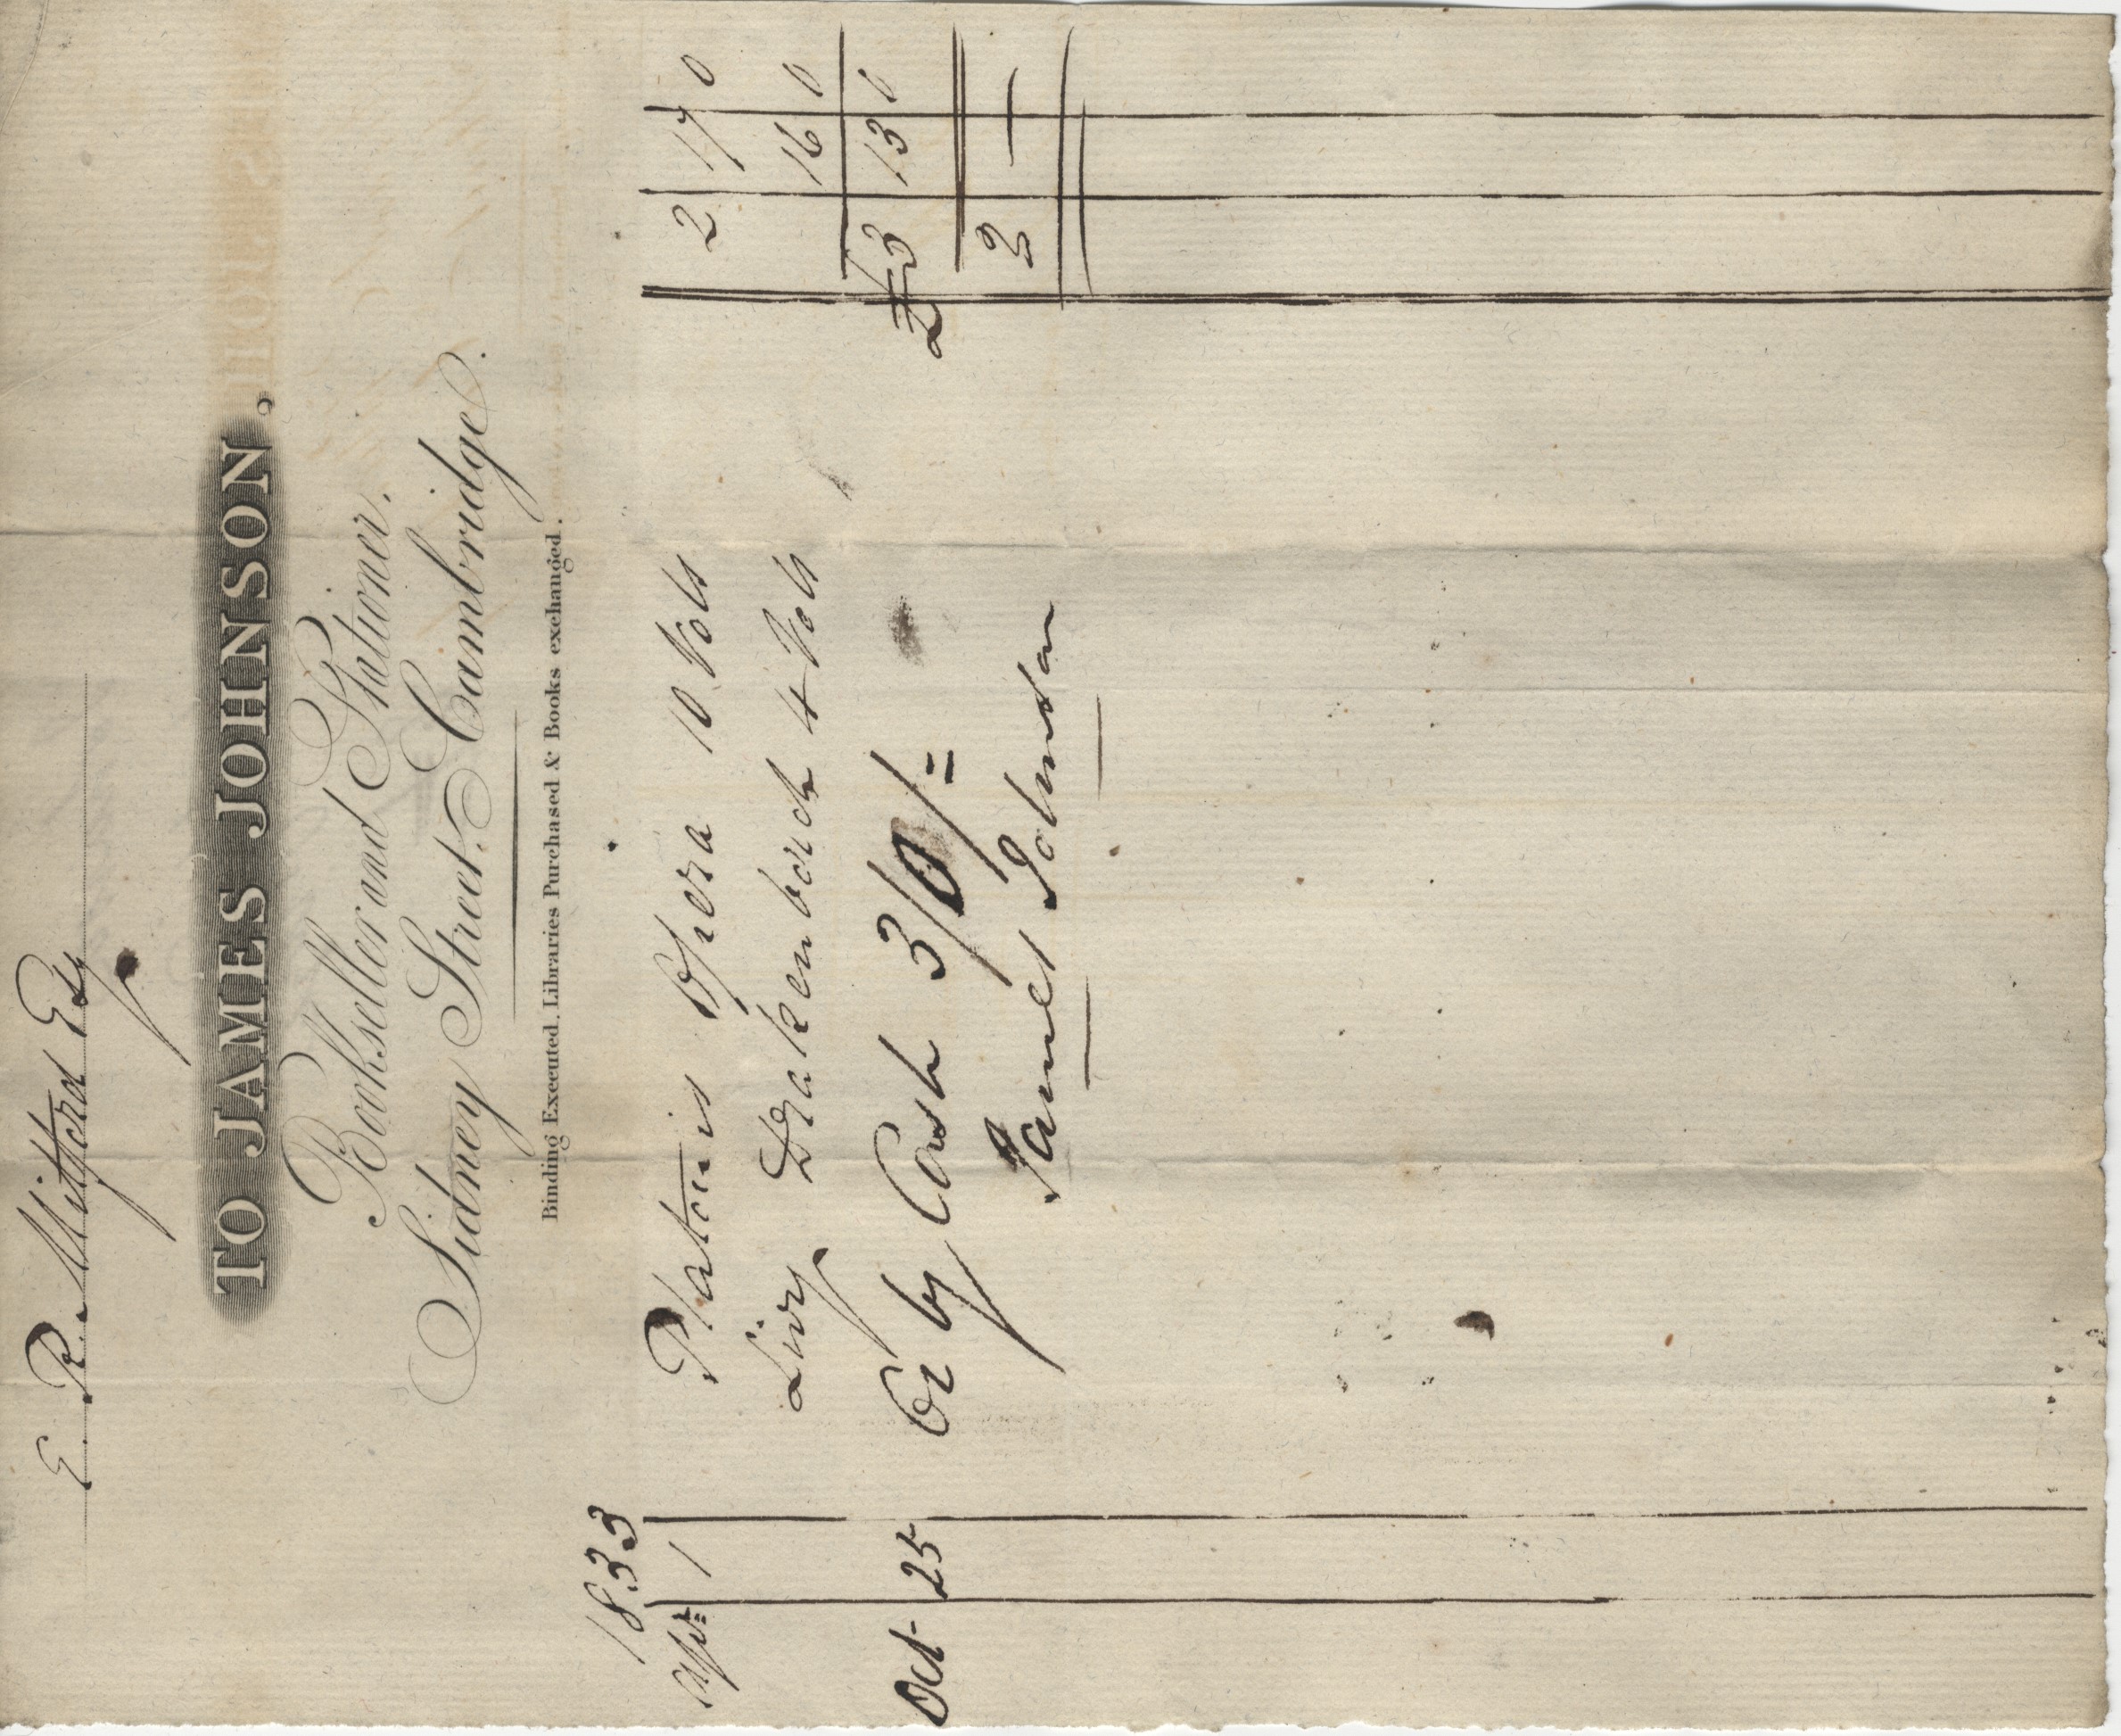 E. R. Mitford Esq
TO JAMES JOHNSON.
Bookseller and Stationer.
Sidney Street, Cambridge.
Binding Executed, Libraries Purchased & Books exchanged.
1833
Apr 1 Platonis Opera 10 Vols 2 17 0
Livy Drakenborch 4 Vols 16 0
£3 13 0
Oct 25 Cr by Cash 3/0/= 
2 —
James Johnson